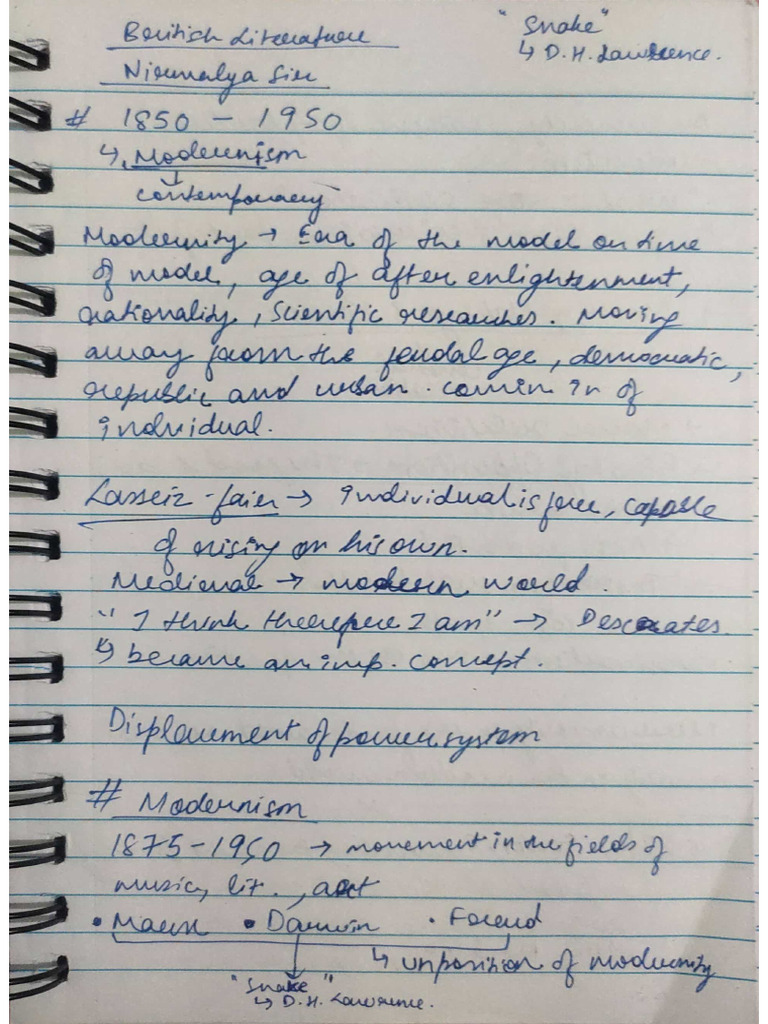 British Literature
Nirmalya Sir
"Snake"
↳ D.H. Lawrence.
# 1850 - 1950
↳ Modernism
↓
contemporary
Modernity → Era of the model or time
of model, age of after enlightenment,
rationality, Scientific researches. Moving
away from the feudal age, democratic,
republic and urban. comin in of
individual.
Lasseiz-fair → individual is free, capable
of rising on his own.
Medieval → modern world.
"I think therefore I am" → Descrates.
↳ became an imp. concept.
Displacement of power system
# Modernism
1875-1950 → movement in the fields of
music, lit., art
• Marx • Darwin • Freud
↳ of modernity
"Snake"
↳ D.H. Lawrence.